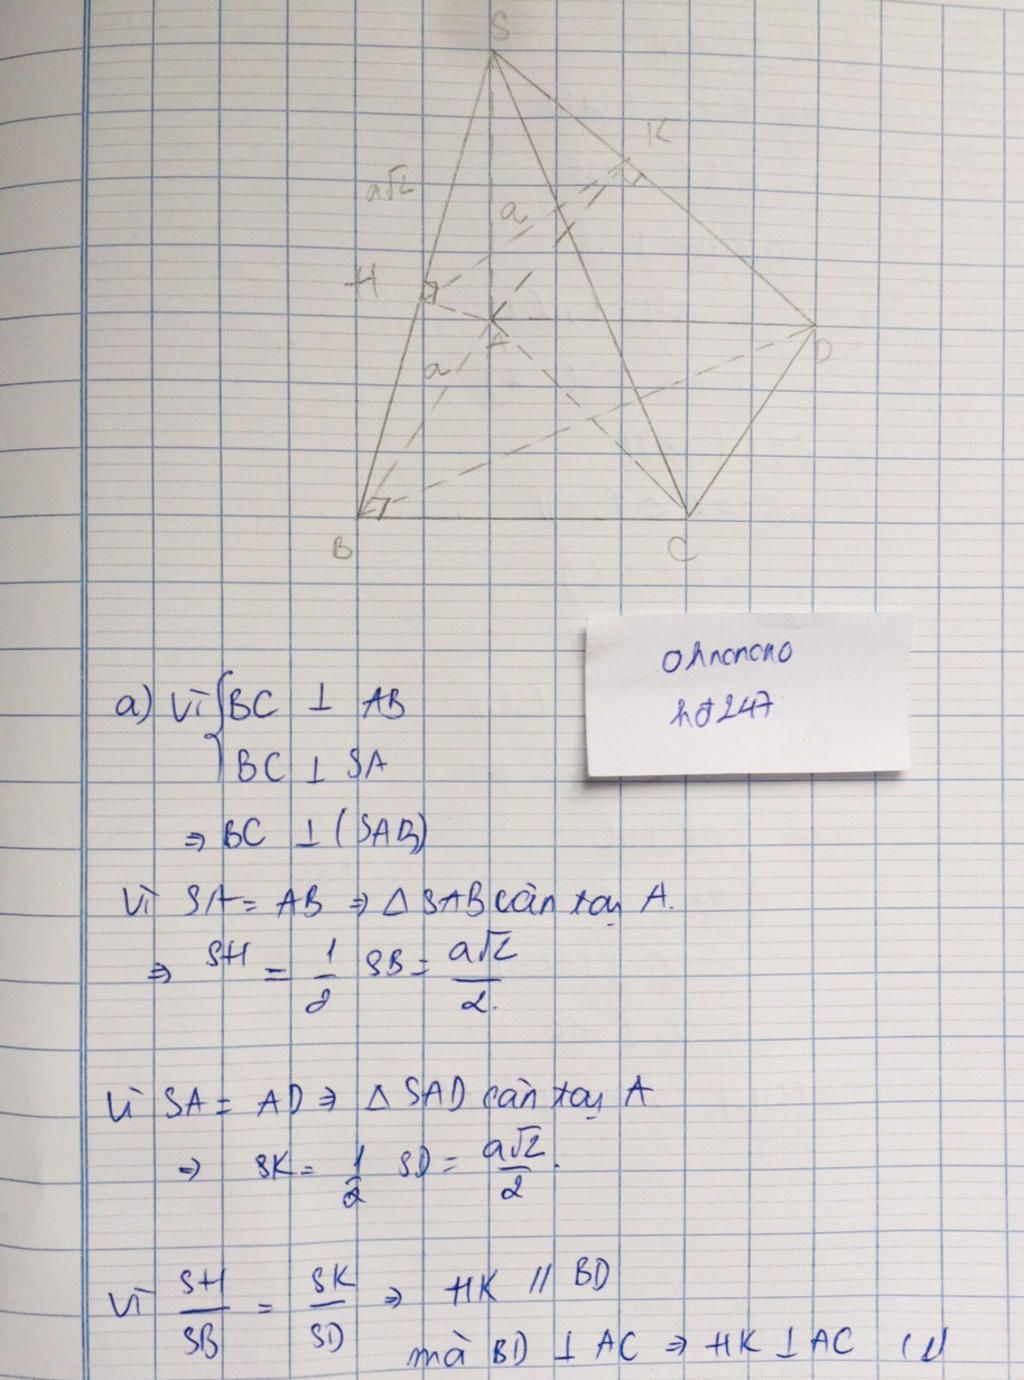 S
K
a√2
a
H
A
D
a
B
C
ohnonono
hđ247
a) Vì { BC ⊥ AB
BC ⊥ SA
⇒ BC ⊥ (SAB)
Vì SA = AB ⇒ Δ SAB cân tại A.
⇒ SH = 1/2 SB = a√2/2.
Vì SA = AD ⇒ Δ SAD cân tại A
⇒ SK = 1/2 SD = a√2/2.
Vì SH/SB = SK/SD ⇒ HK // BD
mà BD ⊥ AC ⇒ HK ⊥ AC (1)